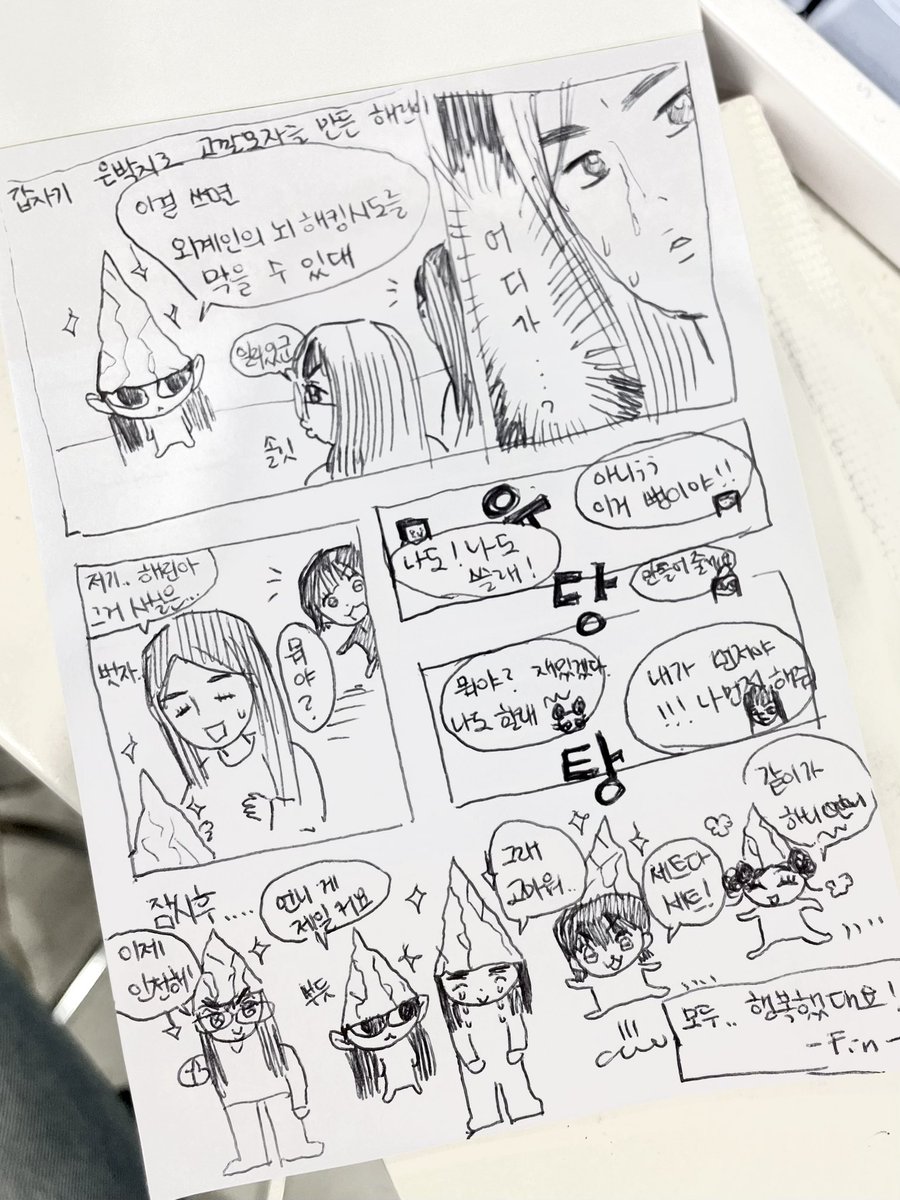 갑자기 은박지로 고깔모자를 만든 해린이
이걸 쓰면
외계인의 뇌 해킹시도를
막을 수 있대
일리있군
솔깃
어디가...?
저기.. 해린아
그거 사실은...
벗자.
뭐야?
우
아니;;
이거 뻥이야!!
나도! 나도
쓸래!
당
만들어 줄게요
뭐야? 재밌겠다.
나도 할래
내가 먼저야
!!! 나 먼저 해줘
탕
잠시후....
이제
안전해
언니 게
제일 커요
뿌듯
그래
고마워..
세트다
세트!
같이가
하니언니
모두.. 행복했대요!
-Fin-